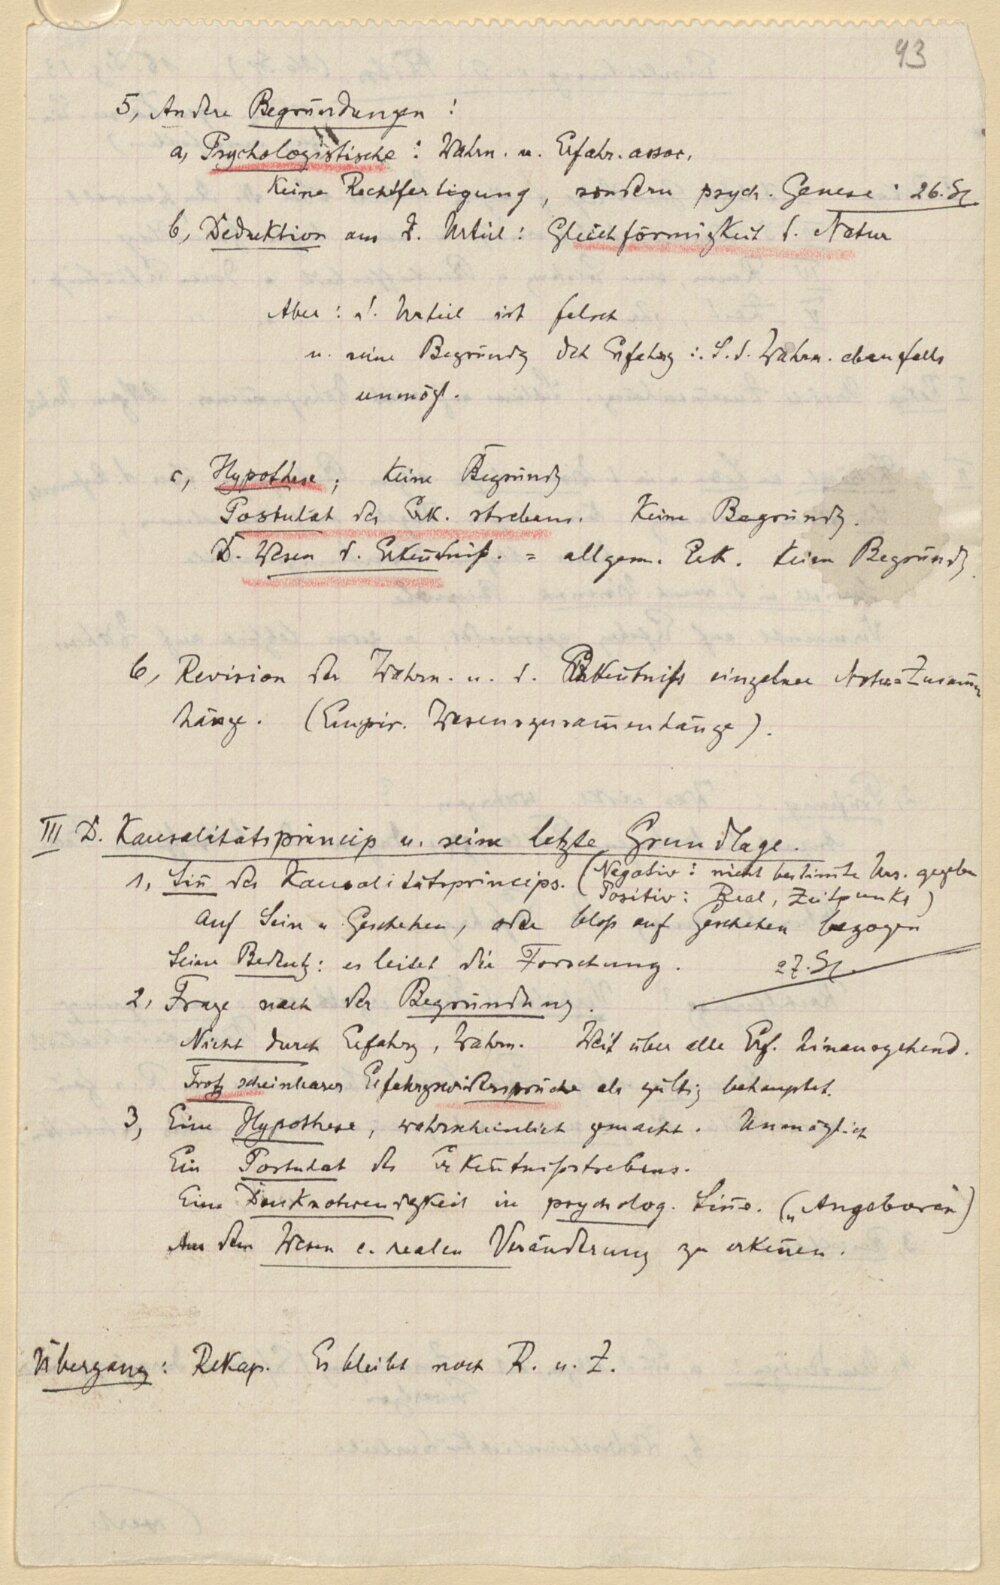 93
5, Andere Begründungen :
a, Psychologistische : Wahrn. u. Erfahr. assoc.
Keine Rechtfertigung, sondern psych. Genese : 26. St.
b, Deduktion aus d. Urteil : Gleichförmigkeit d. Natur
Aber : d. Urteil ist falsch
u. seine Begründg dch Erfahrg i. S. d. Wahrn. ebenfalls
unmögl.
c, Hypothese ; keine Begründg
Postulat des Erk. strebens. Keine Begründg.
D. Wesen d. Erkenntniß. = allgem. Erk. keine Begründg.
6, Revision der Wahrn. u. d. Erkenntniß einzelner Natur=Zusammen
hänge. (Empir. Wesenszusammenhänge).
III D. Kausalitätsprincip u. seine letzte Grundlage.
1, Sinn des Kausalitätsprincips. (Negativ : nicht bestimmte Urs. gegeben
Positiv : Real, Zeitpunkt)
Auf Sein u. Geschehen, oder bloß auf Geschehen bezogen
Seine Bedeutg : es leitet die Forschung. 27. St.
2, Frage nach der Begründung.
Nicht durch Erfahrg, Wahrn. Weit über alle Erf. hinausgehend.
Trotz scheinbarer Erfahrgswidersprüche als gültig behauptet.
3, Eine Hypothese, wahrscheinlich gemacht. Unmöglich
Ein Postulat des Erkenntnißstrebens.
Eine Denknotwendigkeit in psycholog. Sinne. („Angeboren")
Aus dem Wesen e. realen Veränderung zu erkennen.
Übergang : Rekap. Es bleibt noch R. u. Z.